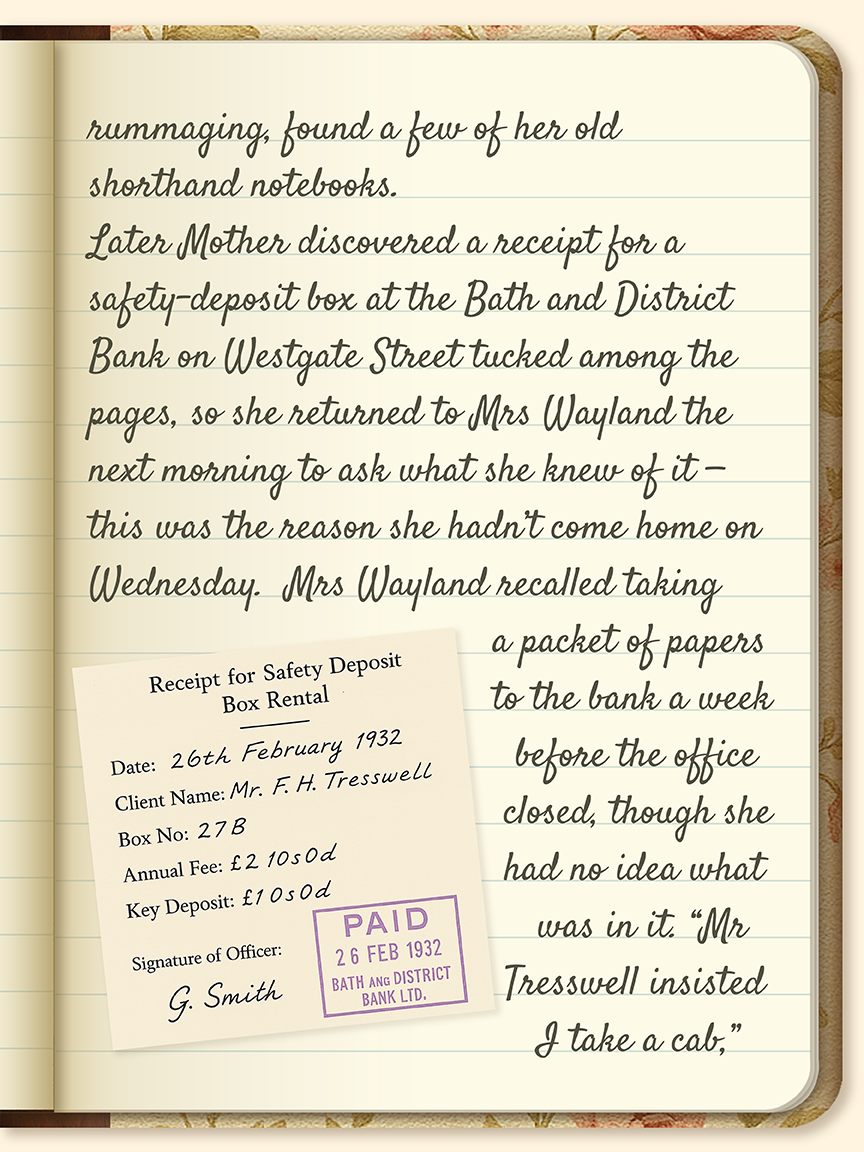 rummaging, found a few of her old
shorthand notebooks.
Later Mother discovered a receipt for a
safety-deposit box at the Bath and District
Bank on Westgate Street tucked among the
pages, so she returned to Mrs Wayland the
next morning to ask what she knew of it –
this was the reason she hadn't come home on
Wednesday. Mrs Wayland recalled taking
a packet of papers
to the bank a week
before the office
closed, though she
had no idea what
was in it. “Mr
Tresswell insisted
I take a cab,”
Receipt for Safety Deposit
Box Rental
Date: 26th February 1932
Client Name: Mr. F. H. Tresswell
Box No: 27B
Annual Fee: £2 10s 0d
Key Deposit: £1 0s 0d
Signature of Officer:
G. Smith
PAID
26 FEB 1932
BATH AND DISTRICT
BANK LTD.